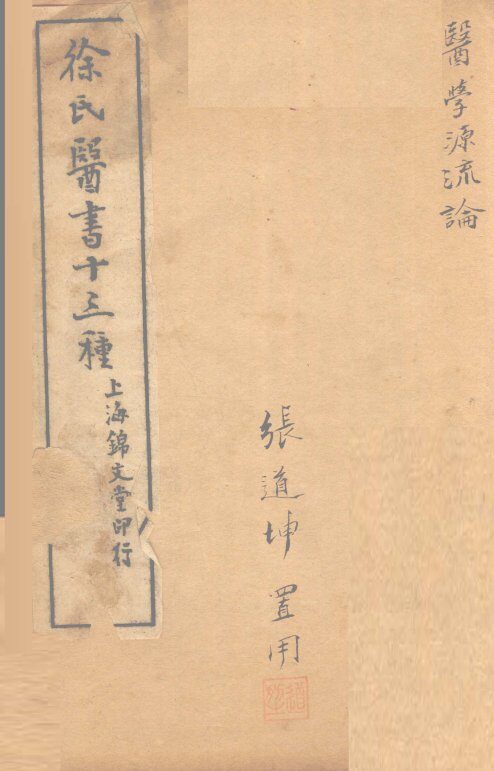 醫學源流論
張道坤 置用
徐氏醫書十三種
上海錦文堂印行